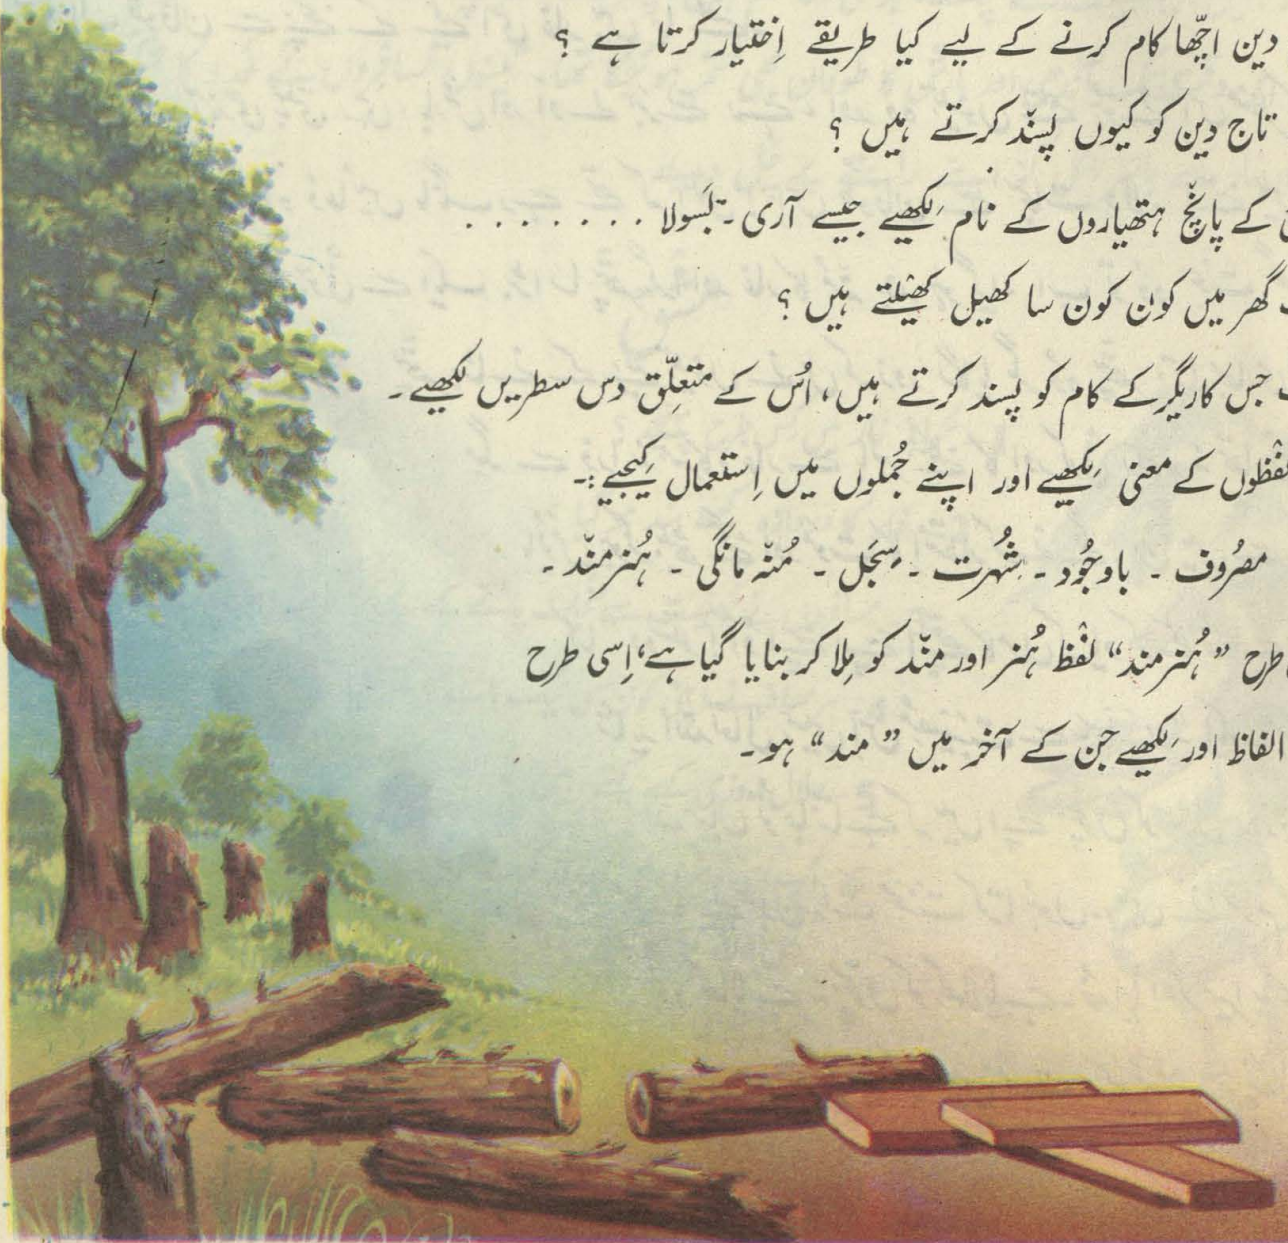 دین اچّھا کام کرنے کے لیے کیا طریقے اِختیار کرتا ہے ؟
تاج دین کو کیوں پسنّد کرتے ہیں ؟
کے پانچّ ہتھیاروں کے نام لِکھیے جیسے آری ۔ بَسولا ........
گھر میں کون کون سا کھیل کھیْلتے ہیں ؟
جس کاریگر کے کام کو پسند کرتے ہیں، اُس کے متعلِّق دس سطریں لکھیے۔
لفْظوں کے معنی لِکھیے اور اپنے جُملوں میں اِستعمال کِیجیے :-
مصرُوف ۔ باوجُود ۔ شُہرت ۔ سَجَل ۔ مُنّہ مانگی ۔ ہُنرمنّد ۔
طرح ”ہُنرمند“ لفْظ ہُنر اور منّد کو مِلا کر بنایا گیا ہے، اِسی طرح
الفاظ اور لِکھیے جن کے آخر میں ”مند“ ہو۔